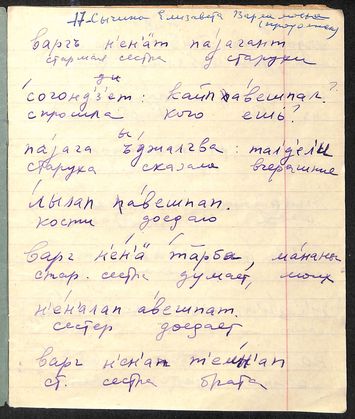 Сычина Елизавета
варгъ н'ен'а̄т па́јагант
старшая сестра у старухи
ды
со́гонд'з'ет: кай павешпал?
спросила кого ешь?
ы
па́јага ъ́джалгва: талде́лы
старуха сказала вчерашние
лы́лап па́вешпап.
кости доедаю
варг н'е́н'ӓ та́рба, ма́нани
стар. сестра ду́мает, моих
н'е́налап а́вешпат.
сестер доедает
варг н'ен'ап т'емн'ап
ст. сестра брата